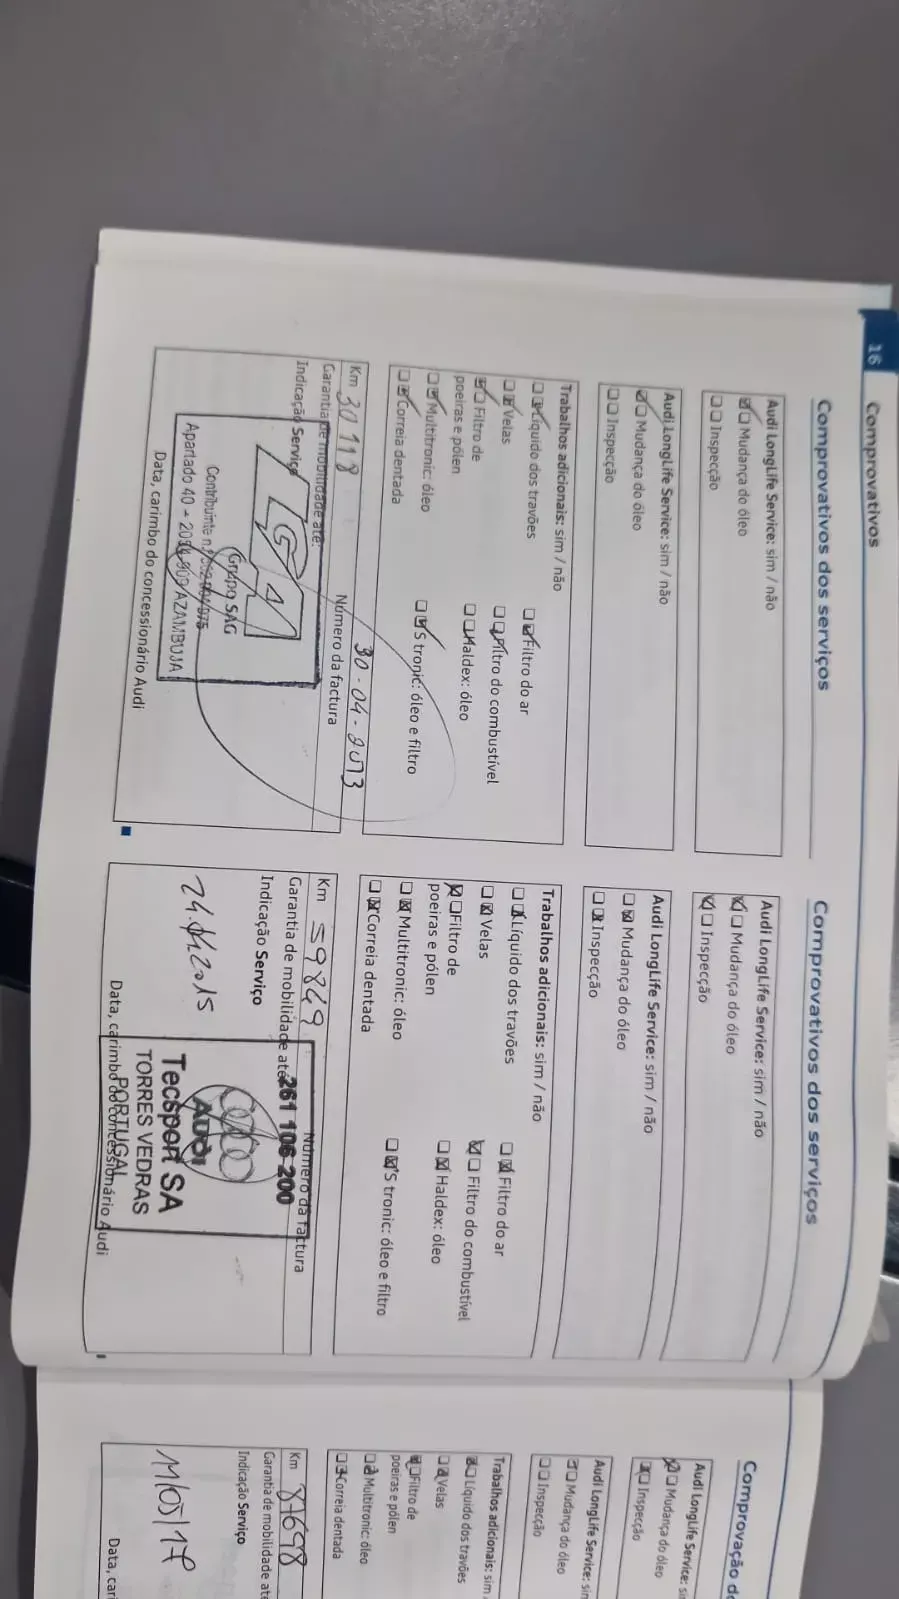 16 Comprovativos
Comprovativos dos serviços
Audi LongLife Service: sim / não
Mudança do óleo
Inspecção
Audi LongLife Service: sim / não
Mudança do óleo
Inspecção
Trabalhos adicionais: sim / não
Líquido dos travões
Filtro do ar
Velas
Filtro do combustível
Filtro de
poeiras e pólen
Haldex: óleo
Multitronic: óleo
S tronic: óleo e filtro
Correia dentada
Km 30118
30-04-2013
Garantia de mobilidade até:
Número da factura
Indicação Serviço
Grupo SAG
Contribuinte n.º
Apartado 40 - AZAMBUJA
Data, carimbo do concessionário Audi
Comprovativos dos serviços
Audi LongLife Service: sim / não
Mudança do óleo
Inspecção
Audi LongLife Service: sim / não
Mudança do óleo
Inspecção
Trabalhos adicionais: sim / não
Líquido dos travões
Filtro do ar
Velas
Filtro do combustível
Filtro de
poeiras e pólen
Haldex: óleo
Multitronic: óleo
S tronic: óleo e filtro
Correia dentada
Km 59849
Número da factura
Garantia de mobilidade até:
261 106 200
Indicação Serviço
Audi
Tecsport SA
TORRES VEDRAS
PORTUGAL
Data, carimbo do concessionário Audi
Comprovação d
Audi LongLife Service: si
Mudança do óleo
Inspecção
Audi LongLife Service: sin
Mudança do óleo
Inspecção
Trabalhos adicionais: sim
Líquido dos travões
Velas
Filtro de
poeiras e pólen
Multitronic: óleo
Correia dentada
Km 81698
Garantia de mobilidade até
Indicação Serviço
11/05/17
Data, cari